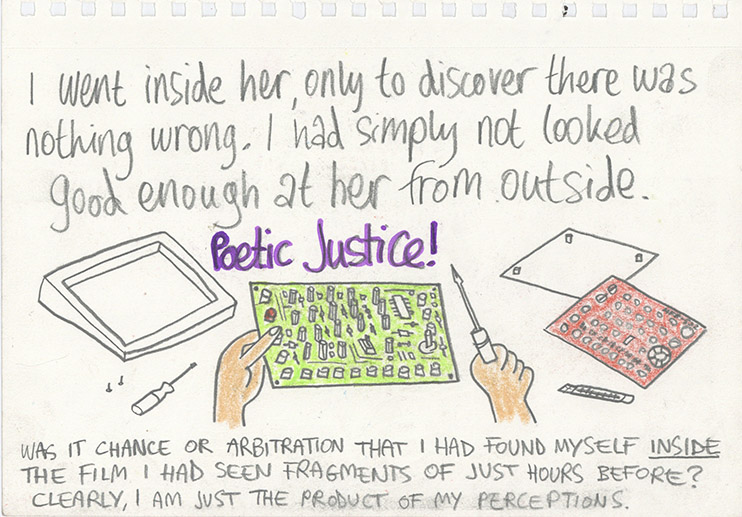 I went inside her, only to discover there was
nothing wrong. I had simply not looked
good enough at her from outside.
Poetic Justice!
WAS IT CHANCE OR ARBITRATION THAT I HAD FOUND MYSELF INSIDE
THE FILM I HAD SEEN FRAGMENTS OF JUST HOURS BEFORE?
CLEARLY, I AM JUST THE PRODUCT OF MY PERCEPTIONS.